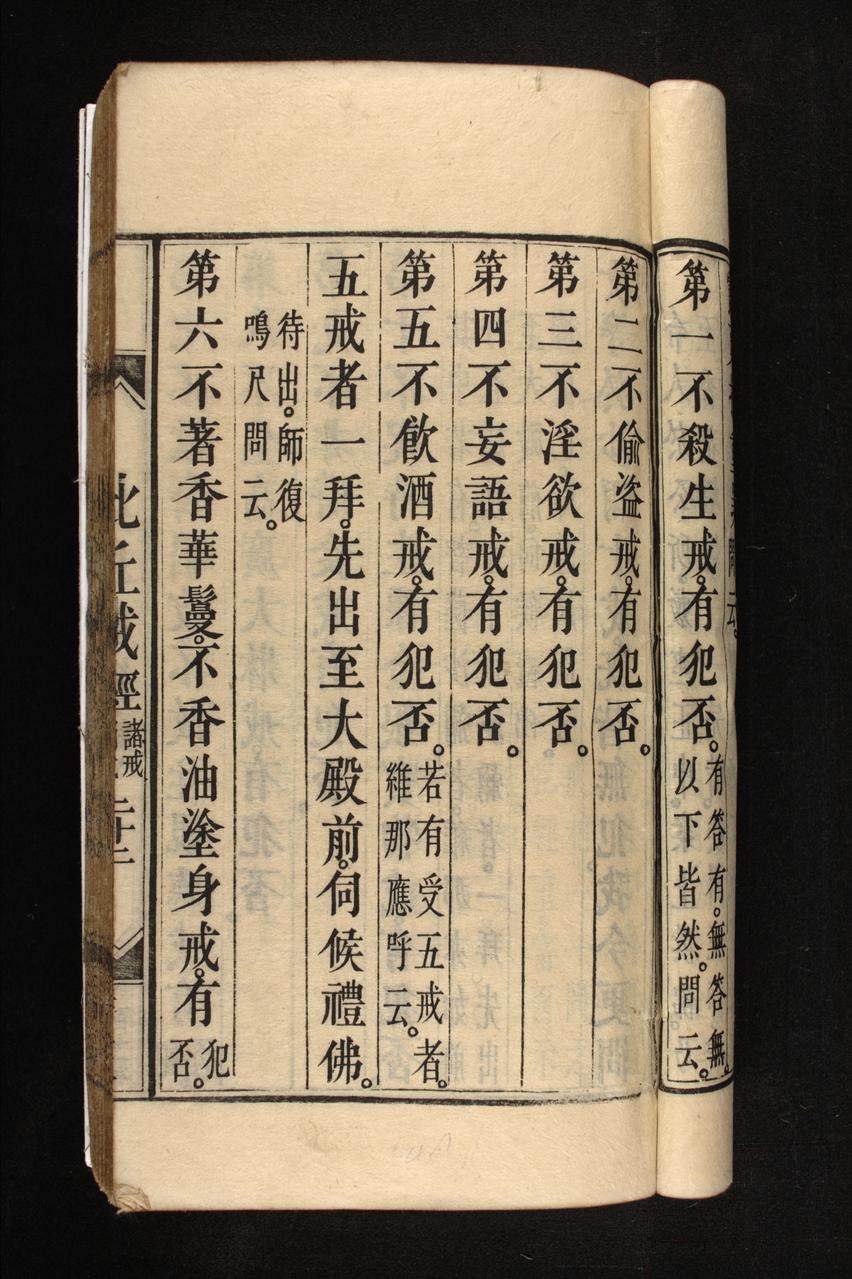 問云。
第一不殺生戒。有犯否。有答有。無答無。以下皆然。問云。
第二不偷盜戒。有犯否。
第三不淫欲戒。有犯否。
第四不妄語戒。有犯否。
第五不飲酒戒。有犯否。若有受五戒者。維那應呼云。
五戒者一拜。先出至大殿前。伺候禮佛。
待出。師復鳴尺問云。
第六不著香華鬘。不香油塗身戒。有犯否。
比丘戒經 諸戒 二十二